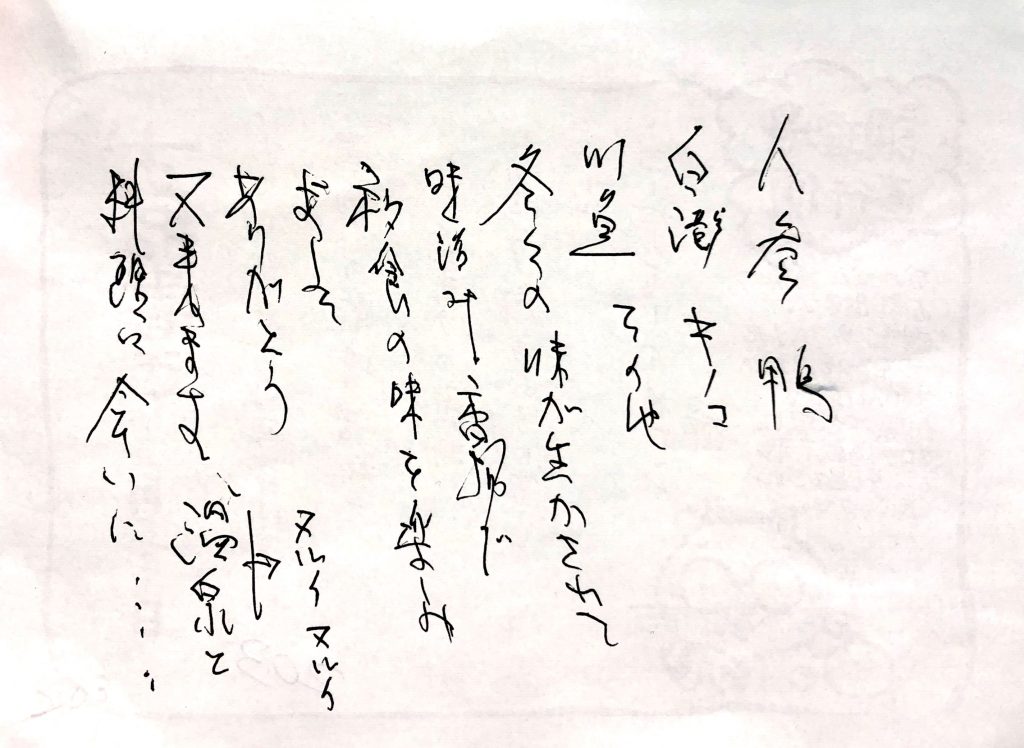 人参 鴨
白滝 キノコ
川魚 その他
冬々の 味が生かされて
味浴み、香招じ
秋食の味を楽しみ
まして
ありがとう
ヌルイヌルイ
又来ます、温泉と
料理に会いに……